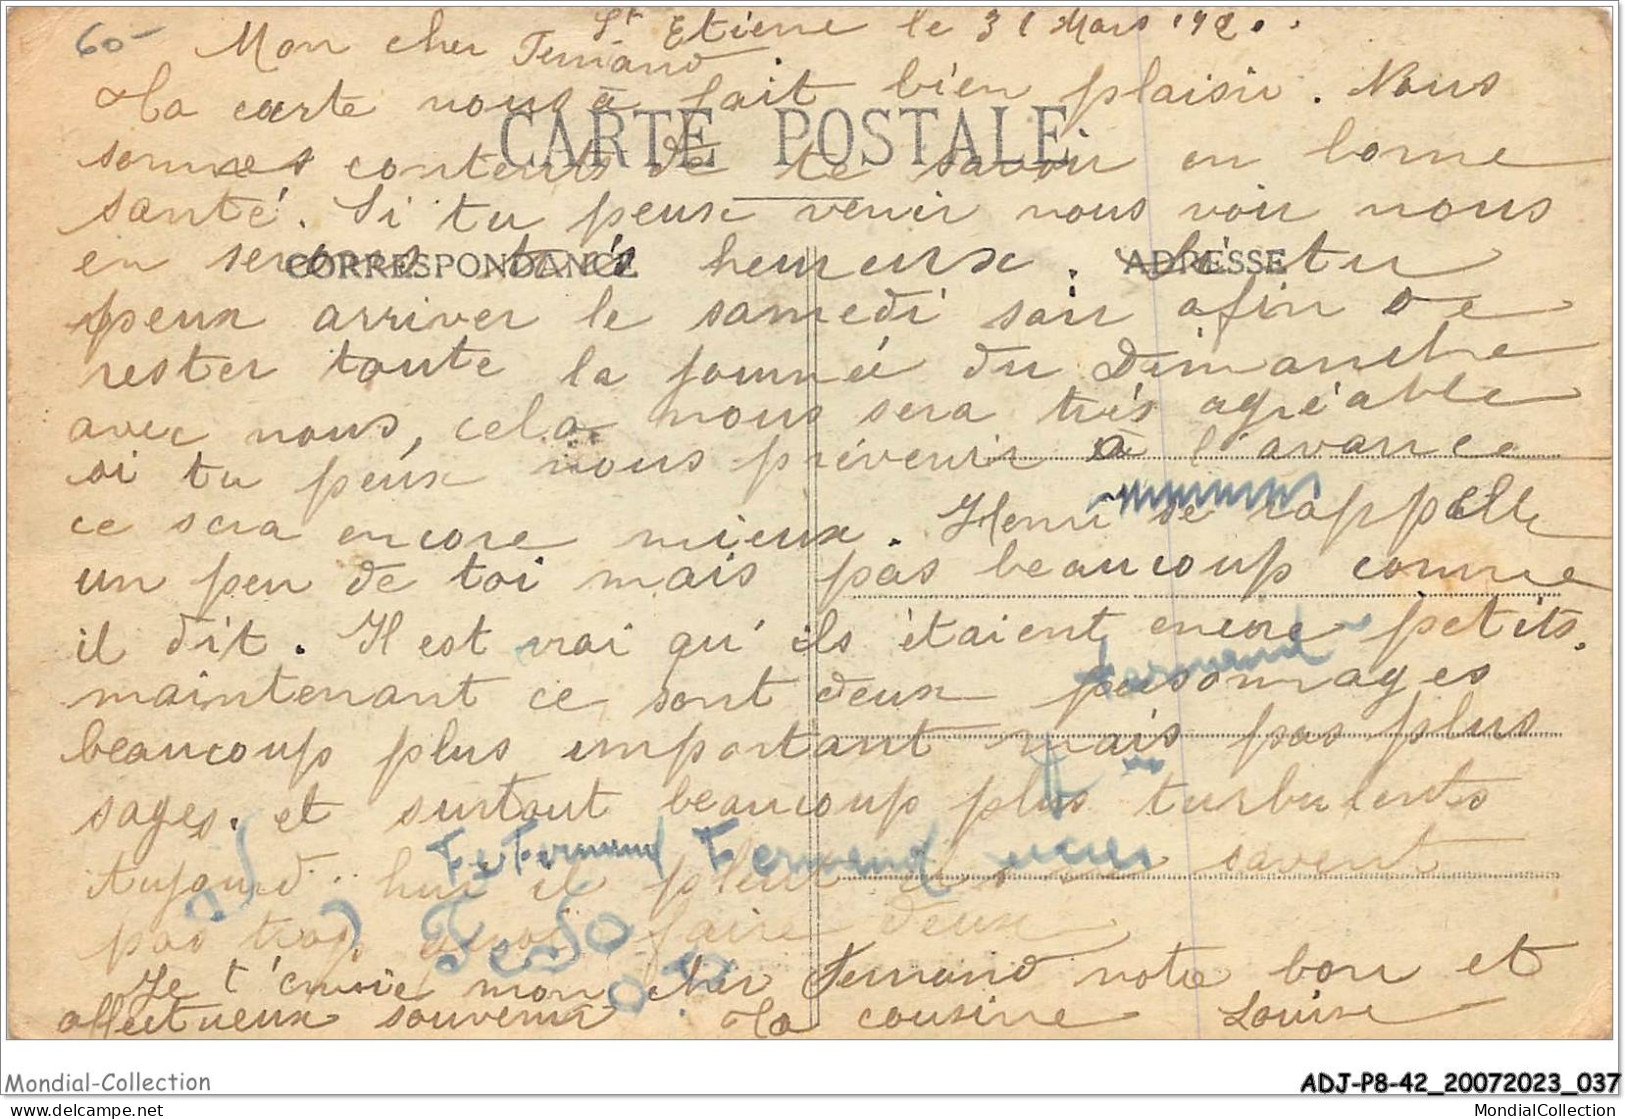 60-
St Etiene le 31 Mars 192..
Mon cher Fernand
Ta carte nous a fait bien plaisir. Nous
CARTE POSTALE
sommes contents de te savoir en bonne
santé. Si tu peux venir nous voir nous
en serons très heureux. Si tu
CORRESPONDANCE ADRESSE
peux arriver le samedi soir afin de
rester toute la journée du Dimanche
avec nous, cela nous sera trés agréable
si tu peux nous prévenir à l'avance
ce sera encore mieux. Henri se rappelle
un peu de toi mais pas beaucoup comme
il dit. Il est vrai qu' ils étaient encore petits.
Fernand
maintenant ce sont deux personnages
beaucoup plus important mais pas plus
sages. et surtout beaucoup plus turbulents
Fe Fernand Fernand
Aujourd'hui il pleut et savent
pas trop quoi faire deux
Je t'envoie mon cher Fernand notre bon et
affectueux souvenir Ta cousine Louise
Mondial-Collection
ADJ-P8-42_20072023_037
www.delcampe.net
MondialCollection